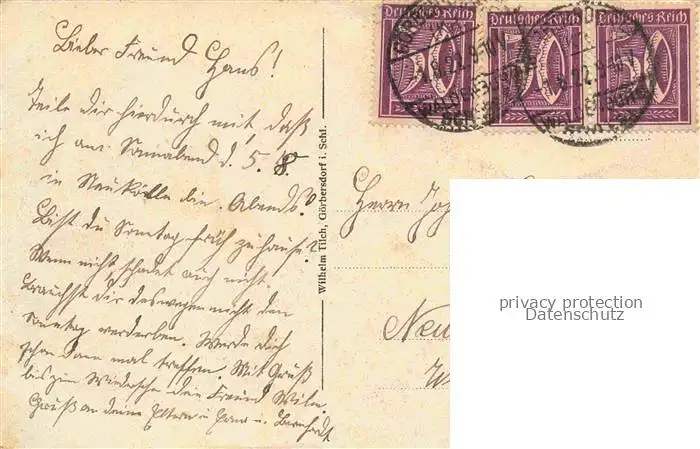 Lieber Freund Hans!
Teile dir hierdurch mit, daß
ich am Sonnabend d. 5. 8.
in Neukölln bin. Abends?
Bist du Sonntag früh zuhause?
Wenn nicht, schadet auch nicht.
Brauchst dir deswegen nicht den
Sonntag verderben. Werde dich
schon dann mal treffen. Mit Gruß
bis zum Wiedersehn dein Freund Wilh.
Gruß an deine Eltern u. u. Bernhardt
Wilhelm Tilch, Görbersdorf i. Schl.
Deutsches Reich
Deutsches Reich
Deutsches Reich
50
50
50
Herrn
Neu
privacy protection
Datenschutz